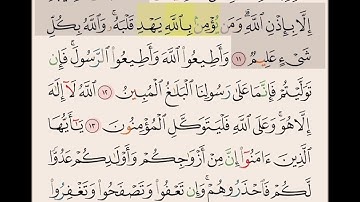 إِلَّا بِإِذْنِ ٱللَّهِ ۗ وَمَن يُؤْمِنۢ بِٱللَّهِ يَهْدِ قَلْبَهُۥ ۚ وَٱللَّهُ بِكُلِّ
شَىْءٍ عَلِيمٌ ١١ وَأَطِيعُوا۟ ٱللَّهَ وَأَطِيعُوا۟ ٱلرَّسُولَ ۚ فَإِن
تَوَلَّيْتُمْ فَإِنَّمَا عَلَىٰ رَسُولِنَا ٱلْبَلَـٰغُ ٱلْمُبِينُ ١٢ ٱللَّهُ لَآ إِلَـٰهَ
إِلَّا هُوَ ۚ وَعَلَى ٱللَّهِ فَلْيَتَوَكَّلِ ٱلْمُؤْمِنُونَ ١٣ يَـٰٓأَيُّهَا
ٱلَّذِينَ ءَامَنُوٓا۟ إِنَّ مِنْ أَزْوَٰجِكُمْ وَأَوْلَـٰدِكُمْ عَدُوًّا
لَّكُمْ فَٱحْذَرُوهُمْ ۚ وَإِن تَعْفُوا۟ وَتَصْفَحُوا۟ وَتَغْفِرُوا۟